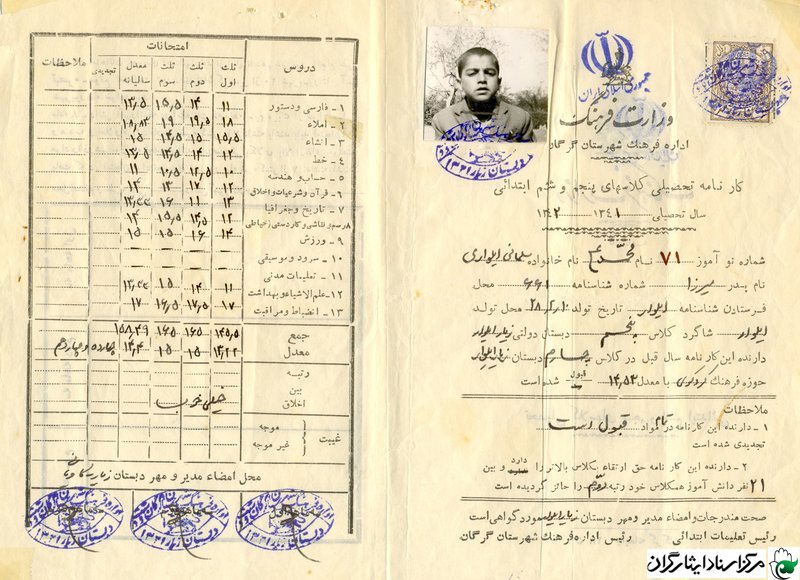 جمهوری اسلامی ایران
وزارت فرهنگ
اداره فرهنگ شهرستان گرگان
کارنامه تحصیلی کلاسهای پنجم و ششم ابتدائی
سال تحصیلی ۱۳۴۱ ۱۳۴۲
شماره نو آموز ۷۱ نام نام خانوادگی سلمانی ایلواری
نام پدر میرزا شناسنامه ۶۶۱ محل
فرستادن شناسنامه ایلوار تاریخ تولد ۲۸ محل تولد
ایلوار شاگرد کلاس پنجم دبستان دولتی زیارایلوار
دارنده این کارنامه سال قبل در کلاس چهارم دبستان زیارایلوار
حوزه فرهنگ کردکوی با معدل ۱۴٫۵۲ قبول شده است
ملاحظات
۱ - دارنده این کارنامه در تمام مواد قبول است
تجدیدی شده است
۲ - دارنده این کارنامه حق ارتقاء بکلاس بالاتر را دارد و بین
۲۱ نفر دانش آموز همکلاس خود رتبه دوم را حائز گردیده است
صحت مندرجات و امضاء مدیر و مهر دبستان زیارایلوار مورد گواهی است
رئیس تعلیمات ابتدائی رئیس اداره فرهنگ شهرستان گرگان
دروس امتحانات ملاحظات
ثلث اول ثلث دوم ثلث سوم معدل سالیانه تجدیدی
۱ - فارسی و دستور ۱۱ ۱۴ ۱۵٫۵ ۱۳٫۵
۲ - املاء ۱۸ ۱۹٫۵ ۱۹ ۱۸٫۸۳
۳ - انشاء ۱۵٫۵ ۱۵ ۱۴٫۵ ۱۵
۴ - خط ۱۲ ۱۴
۵ - حساب و هندسه ۱۰ ۱۲٫۵ ۱۰٫۵ ۱۱
۶ - قرآن و شرعیات و اخلاق ۱۲ ۱۳ ۱۲
۷ - تاریخ و جغرافیا ۱۳ ۱۱ ۱۶
۸ - رسم و نقاشی و کاردستی (خیاطی) ۱۲ ۱۵٫۵ ۱۴
۹ - ورزش ۱۴ ۱۶ ۱۵ ۱۵
۱۰ - سرود و موسیقی
۱۱ - تعلیمات مدنی
۱۲ - علم الاشیاء و بهداشت ۱۱ ۱۴ ۱۵
۱۳ - انضباط و مراقبت ۱۷ ۱۷٫۵ ۱۶٫۵ ۱۷
جمع ۱۴۵٫۵ ۱۶۵ ۱۶۵ ۱۵۸٫۴۹
معدل ۱۳٫۲۲ ۱۵ ۱۵ ۱۴٫۴ چهارده و چهاردهم
رتبه
بین
اخلاق خیلی خوب
غیبت موجه
غیر موجه
محل امضاء مدیر و مهر دبستان
مرکز اسناد ایثارگران